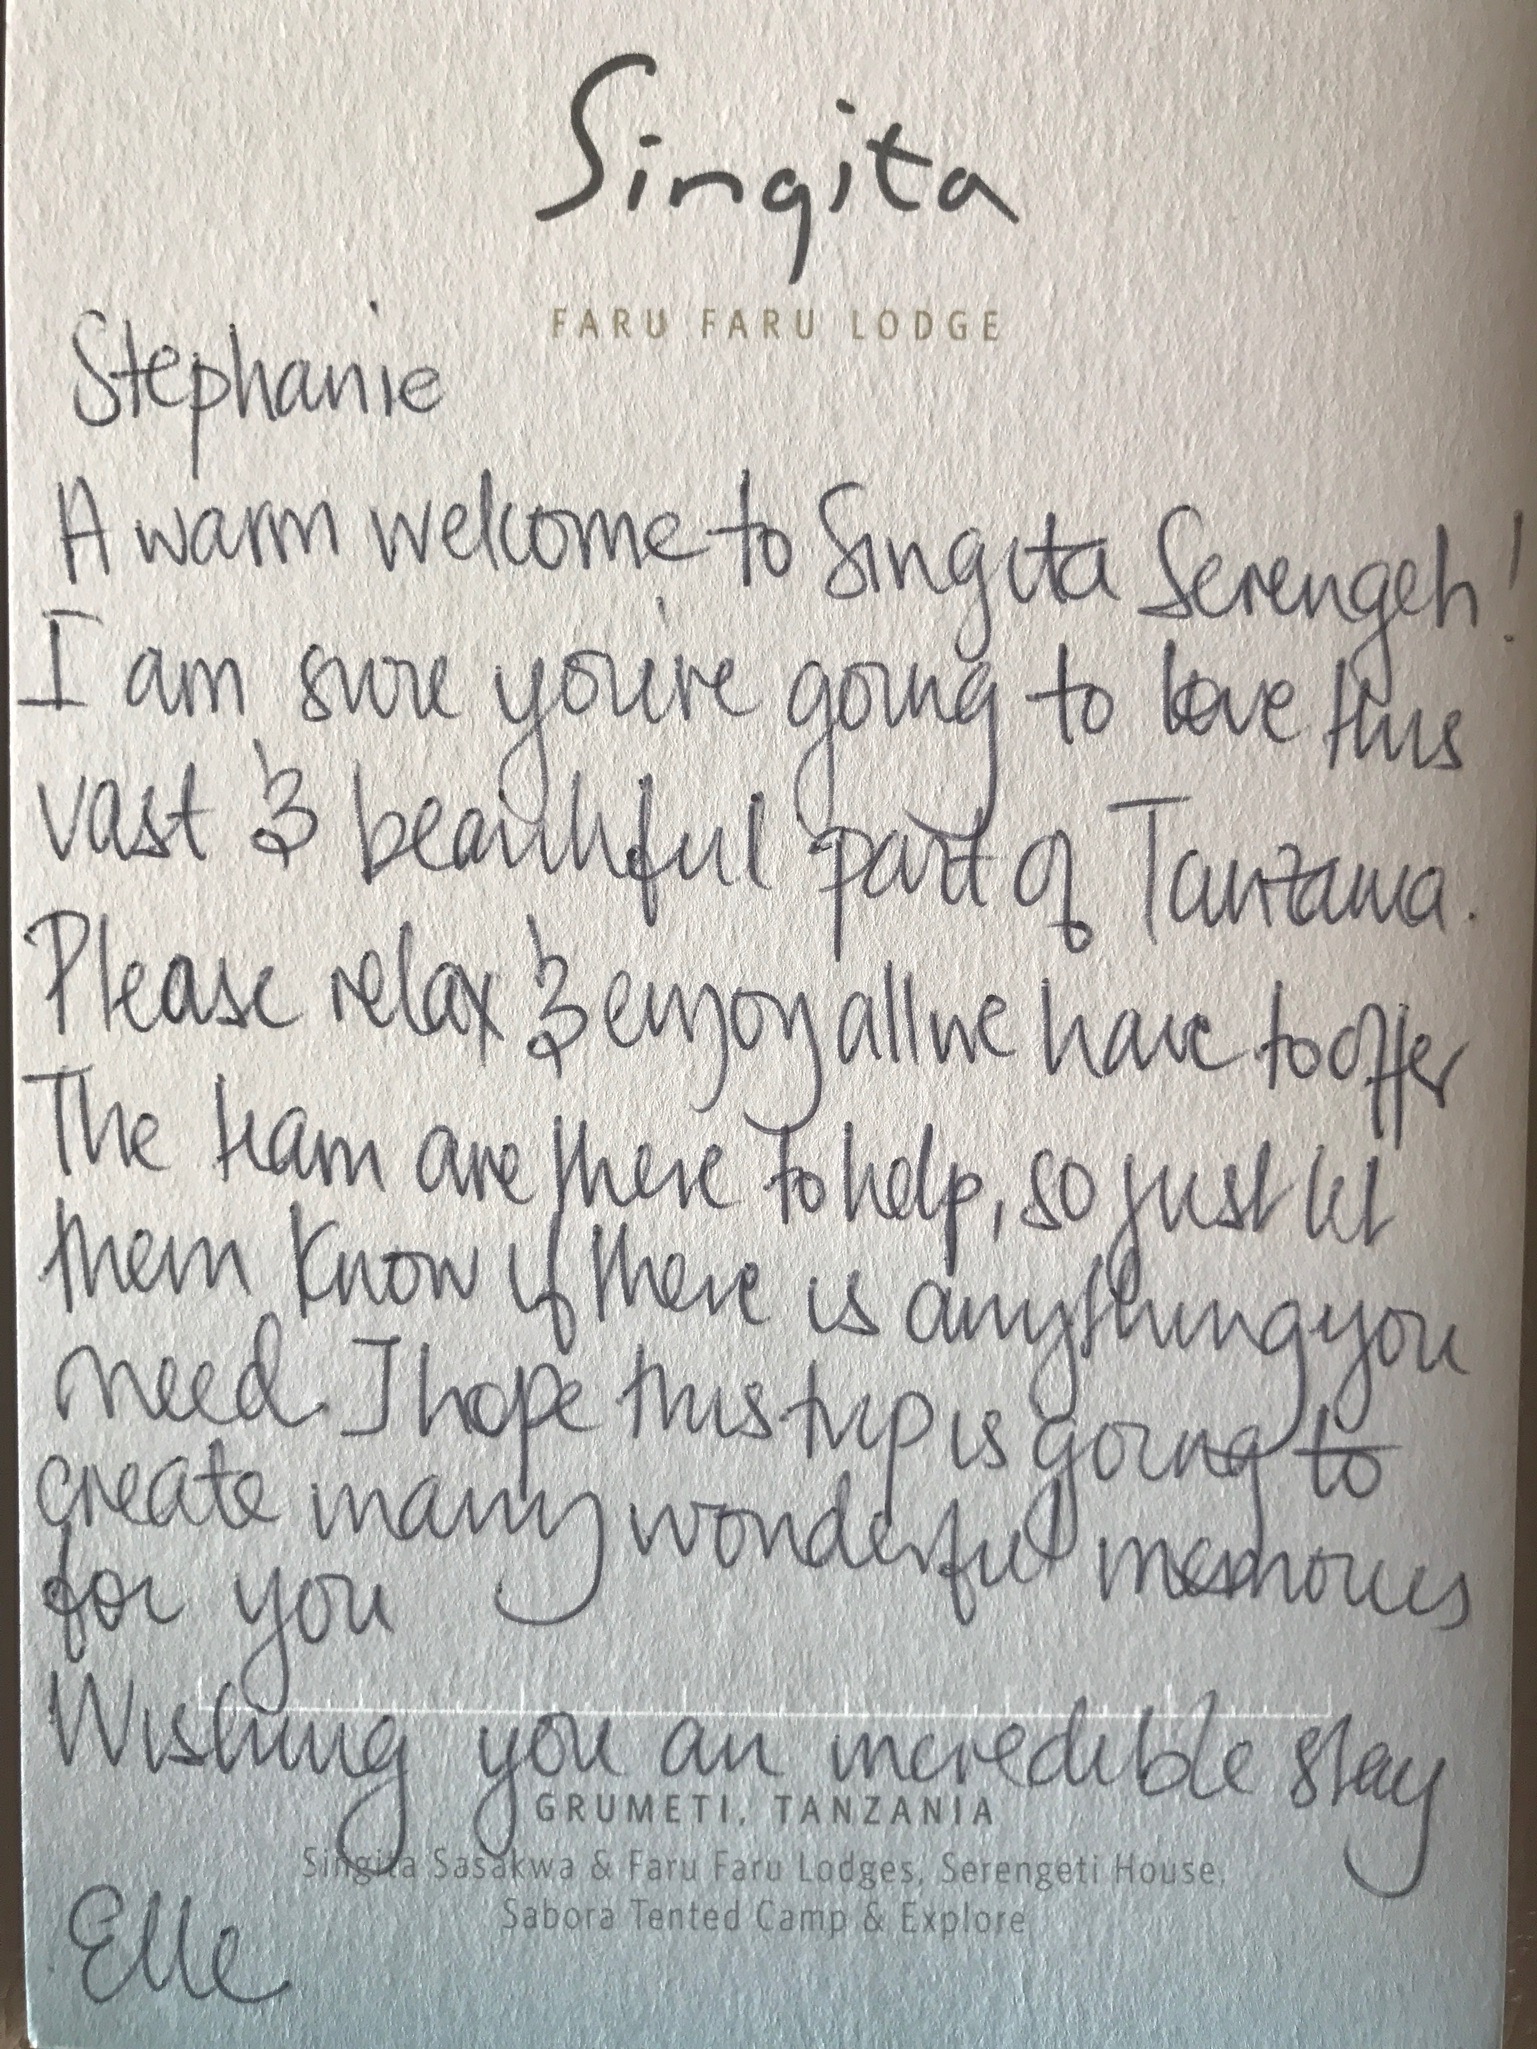 Singita
FARU FARU LODGE
Stephanie
A warm welcome to Singita Serengeti!
I am sure you're going to love this
vast & beautiful part of Tanzania.
Please relax & enjoy all we have to offer
The team are there to help, so just let
them know if there is anything you
need. I hope this trip is going to
create many wonderful memories
for you
Wishing you an incredible stay
GRUMETI, TANZANIA
Singita Sasakwa & Faru Faru Lodges, Serengeti House,
Sabora Tented Camp & Explore
Elle